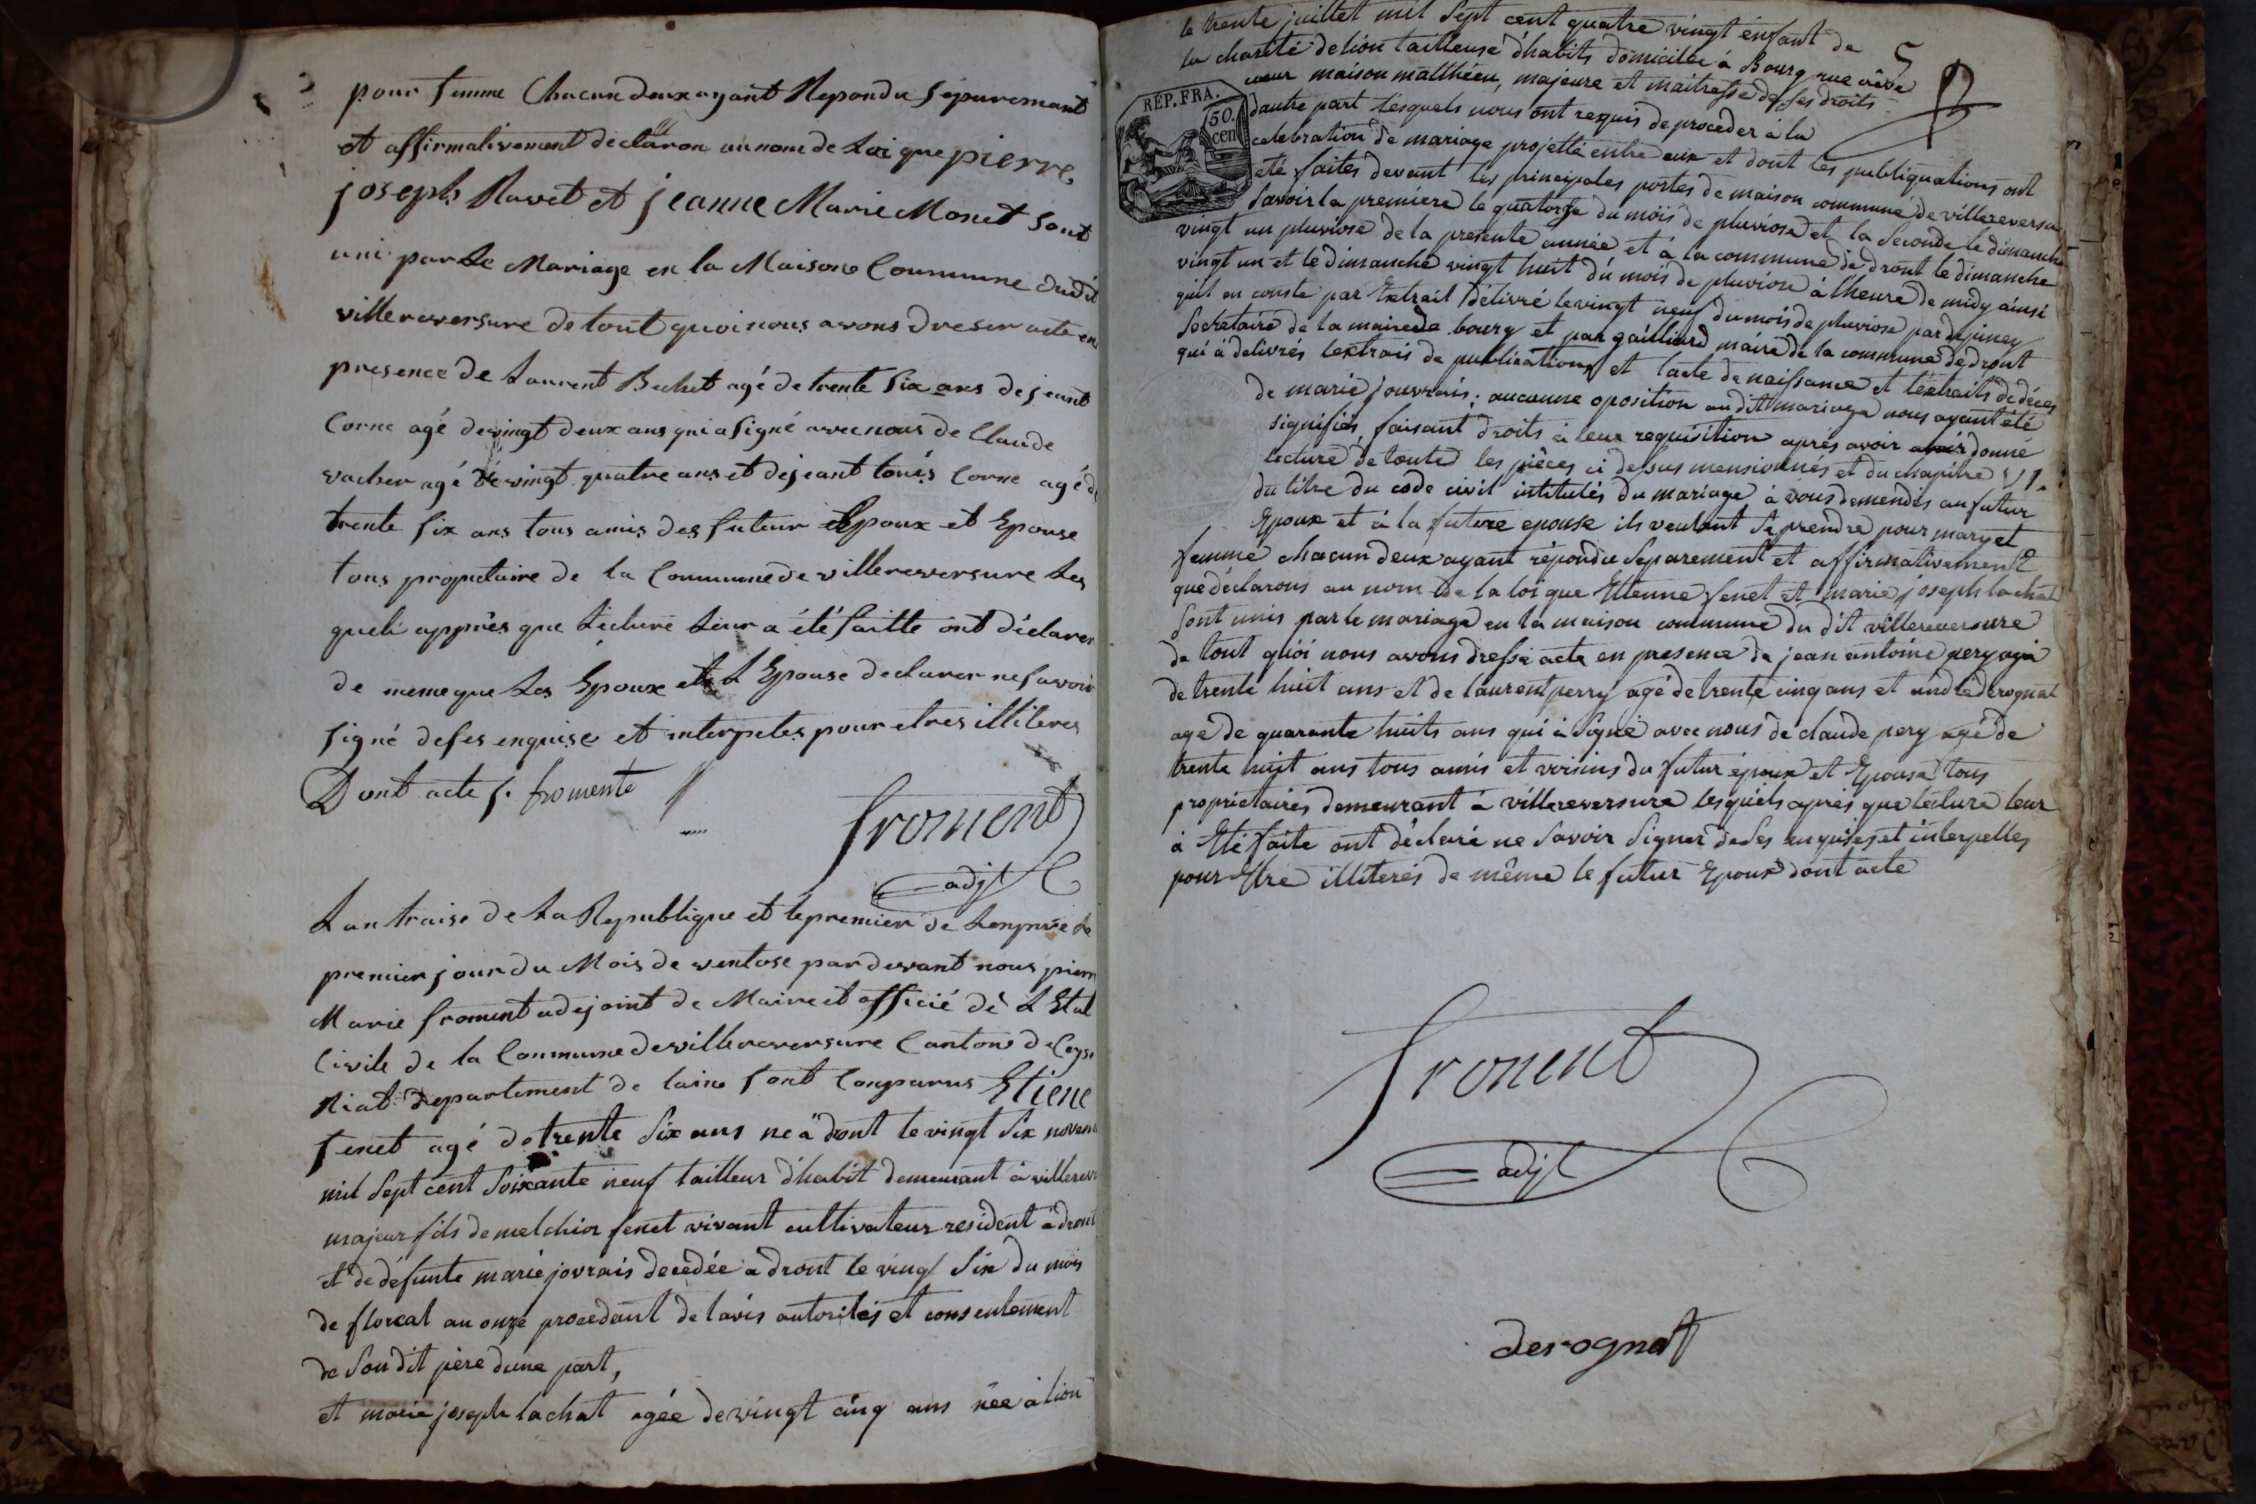 pour femme Chacun deux ayant Repondu separemant
et affirmativemant declaron au nom de Loi que pierre
joseph Ravet et jeanne Marie Monet sont
uni par Le Mariage en la Maison Commune dudit
villereversure de tout quoi nous avons dreser acte en
presence de Laurent Bechet agé de trente six ans de jeant
Corne agé de vingt deux ans qui a signé avec nous de Claude
vacher agé de vingt quatre ans et de jeant Corne agé de
trente six ans tous amis des futeur Epoux et Epouse
tous propietaire de la Commune de villereversure Les
quels apprès que Lecture Leur a été faitte ont déclarer
de meme que Les Epoux et L Epouse declarer ne savoir
signé de ses enquise et interpeles pour etres illiteres
Dont acte f. fromente
froment
adjt
Lan traise de La Republique et le premier de Lenpire Le
premier jour du Mois de ventose par devant nous pierre
Marie froment adejoint de Maire et officié dè L Etat
Civile de la Commune de villereversure Canton de Ceyse
Riat Departement de lain sont Conparus Etiene
fenet agé de trente six ans né a dront le vingt six novem
mil sept cent soixante neuf tailleur d'habit demeurant à villerever
majeur fils de melchior fenet vivant cultivateur resident à dront
et de défunte marie jovrais decedée a dront le vingt six du mois
de floreal an onze procedant de lavis autorités et consentement
de son dit père d'une part,
et marie joseph lachat agée de vingt cinq ans née à lion
5
le trente juillet mil sept cent quatre vingt enfant de
la charité de lion tailleuse d'habits domiciliée à Bourg rue
cœur maison matthieu, majeure et maitresse de ses droits
REP. FRA.
50.
cen
dautre part lesquels nous ont requis de proceder à la
celebration de mariage projetté entre eux et dont les publiquations ont
eté faites devant les principales portes de maison commune de villereversure
savoir la première le quatorze du mois de pluviose et la seconde le dimanche
vingt un pluviose de la presente année et à la commune de dront le dimanche
vingt un et le dimanche vingt huit du mois de pluviose à lheure de midy ainsi
quil en conste par Extrait délivré le vingt neuf du mois de pluviose par depiney
Secretaire de la mairie de bourg et par gailliard maire de la commune de dront
qui à delivrés lextrais de publications et lacte de naissance et lextraits de décès
de marie jouvrais; aucunne oposition audit mariage nous ayant été
signifiés, faisant droits à leur requisition après avoir avoir donné
lecture de toutes les pièces ci dessus mensionnés et du chapitre VI.
du titre du code civil intitulés du mariage à vous demendés au futur
Epoux et à la future epouse ils veulent se prendre pour mary et
femme chacun deux ayant répondu separement et affirmativement
que déclarons au nom de la loi que Etienne fenet et marie joseph lachat
sont unis par le mariage en la maison commune du dit villereversure
de tout quoi nous avons dressé acte en presence de jean antoine pery agé
de trente huit ans et de laurent perry agé de trente cinq ans et derognat
agé de quarante huits ans qui à signé avec nous de claude pery agé de
trente huit ans tous amis et voisins du futur époux et Epouse tous
proprietaires demeurant à villereversure lesquels après que lecture leur
à Eté faite ont déclaré ne savoir signer de ses enquises et interpelles
pour Etre illiterés de même le futur Epoux dont acte
froment
adjt
derognat